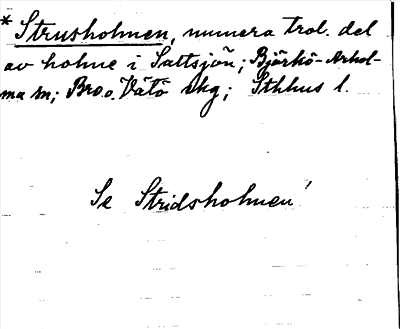 * Strusholmen, numera trol. del
av holme i Saltsjön; Björkö-Arhol-
ma sn; Bro o. Vätö skg; Sthlms l.
Se Stridsholmen!